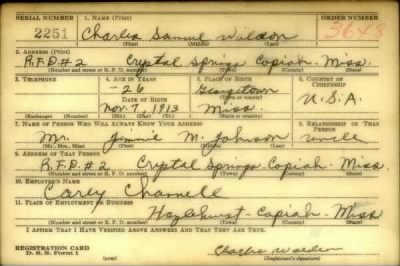 SERIAL NUMBER 1. NAME (Print) ORDER NUMBER
2251 Charlie Samuel Weldon 3648
(First) (Middle) (Last)
2. ADDRESS (Print)
R.F.D. #2 Crystal Springs Copiah Miss.
(Number and street or R. F. D. number) (Town) (County) (State)
3. TELEPHONE 4. AGE IN YEARS 5. PLACE OF BIRTH 6. COUNTRY OF CITIZENSHIP
26 Georgetown
(Town or county)
DATE OF BIRTH U.S.A.
Nov. 7, 1913 Miss
(Exchange) (Number) (Mo.) (Day) (Yr.) (State or country)
7. NAME OF PERSON WHO WILL ALWAYS KNOW YOUR ADDRESS 8. RELATIONSHIP OF THAT PERSON
Mr. Jimmie M. Johnson uncle
(Mr., Mrs., Miss) (First) (Middle) (Last)
9. ADDRESS OF THAT PERSON
R.F.D. #2 Crystal Springs Copiah Miss.
(Number and street or R. F. D. number) (Town) (County) (State)
10. EMPLOYER'S NAME
Carey
11. PLACE OF EMPLOYMENT OR BUSINESS
Hazlehurst - Copiah - Miss
(Number and street or R. F. D. number) (Town) (County) (State)
I AFFIRM THAT I HAVE VERIFIED ABOVE ANSWERS AND THAT THEY ARE TRUE.
REGISTRATION CARD
D. S. S. Form 1 Charlie Weldon
(Registrant's signature)